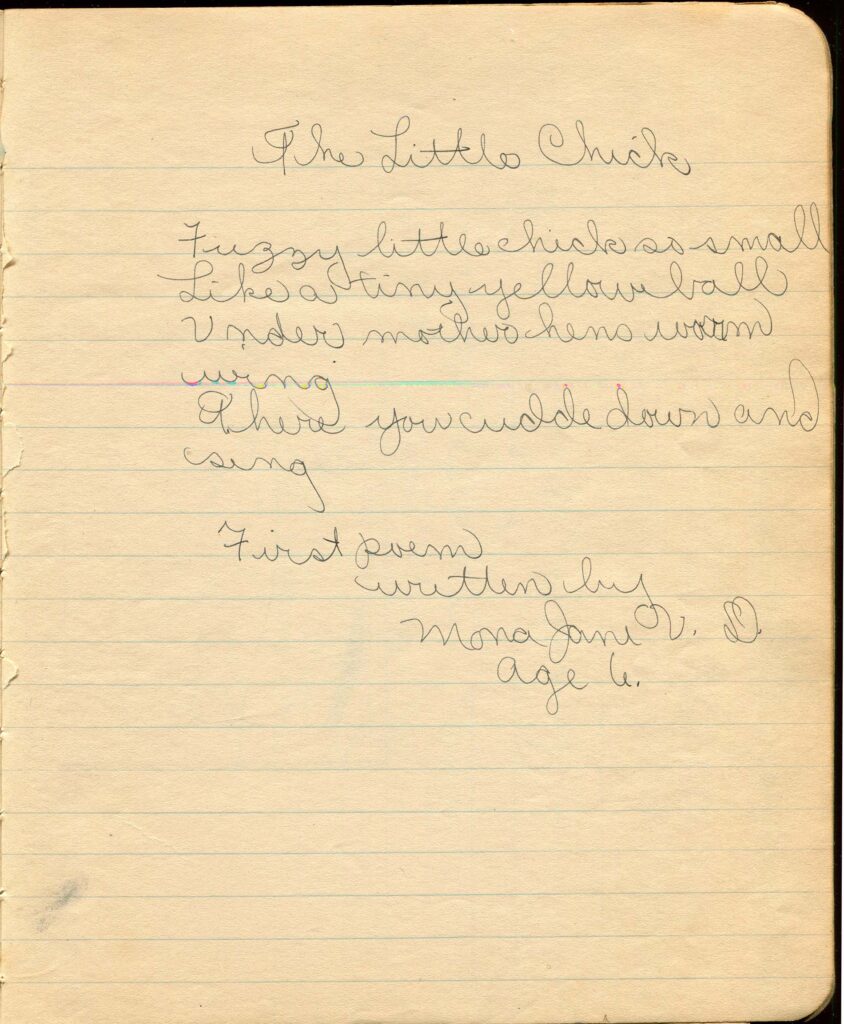 The Little Chick
Fuzzy little chick so small
Like a tiny yellow ball
Under mother hens warm
wing
There you cudde down and
sing
First poem
written by
Mona Jane V. D.
Age 6.